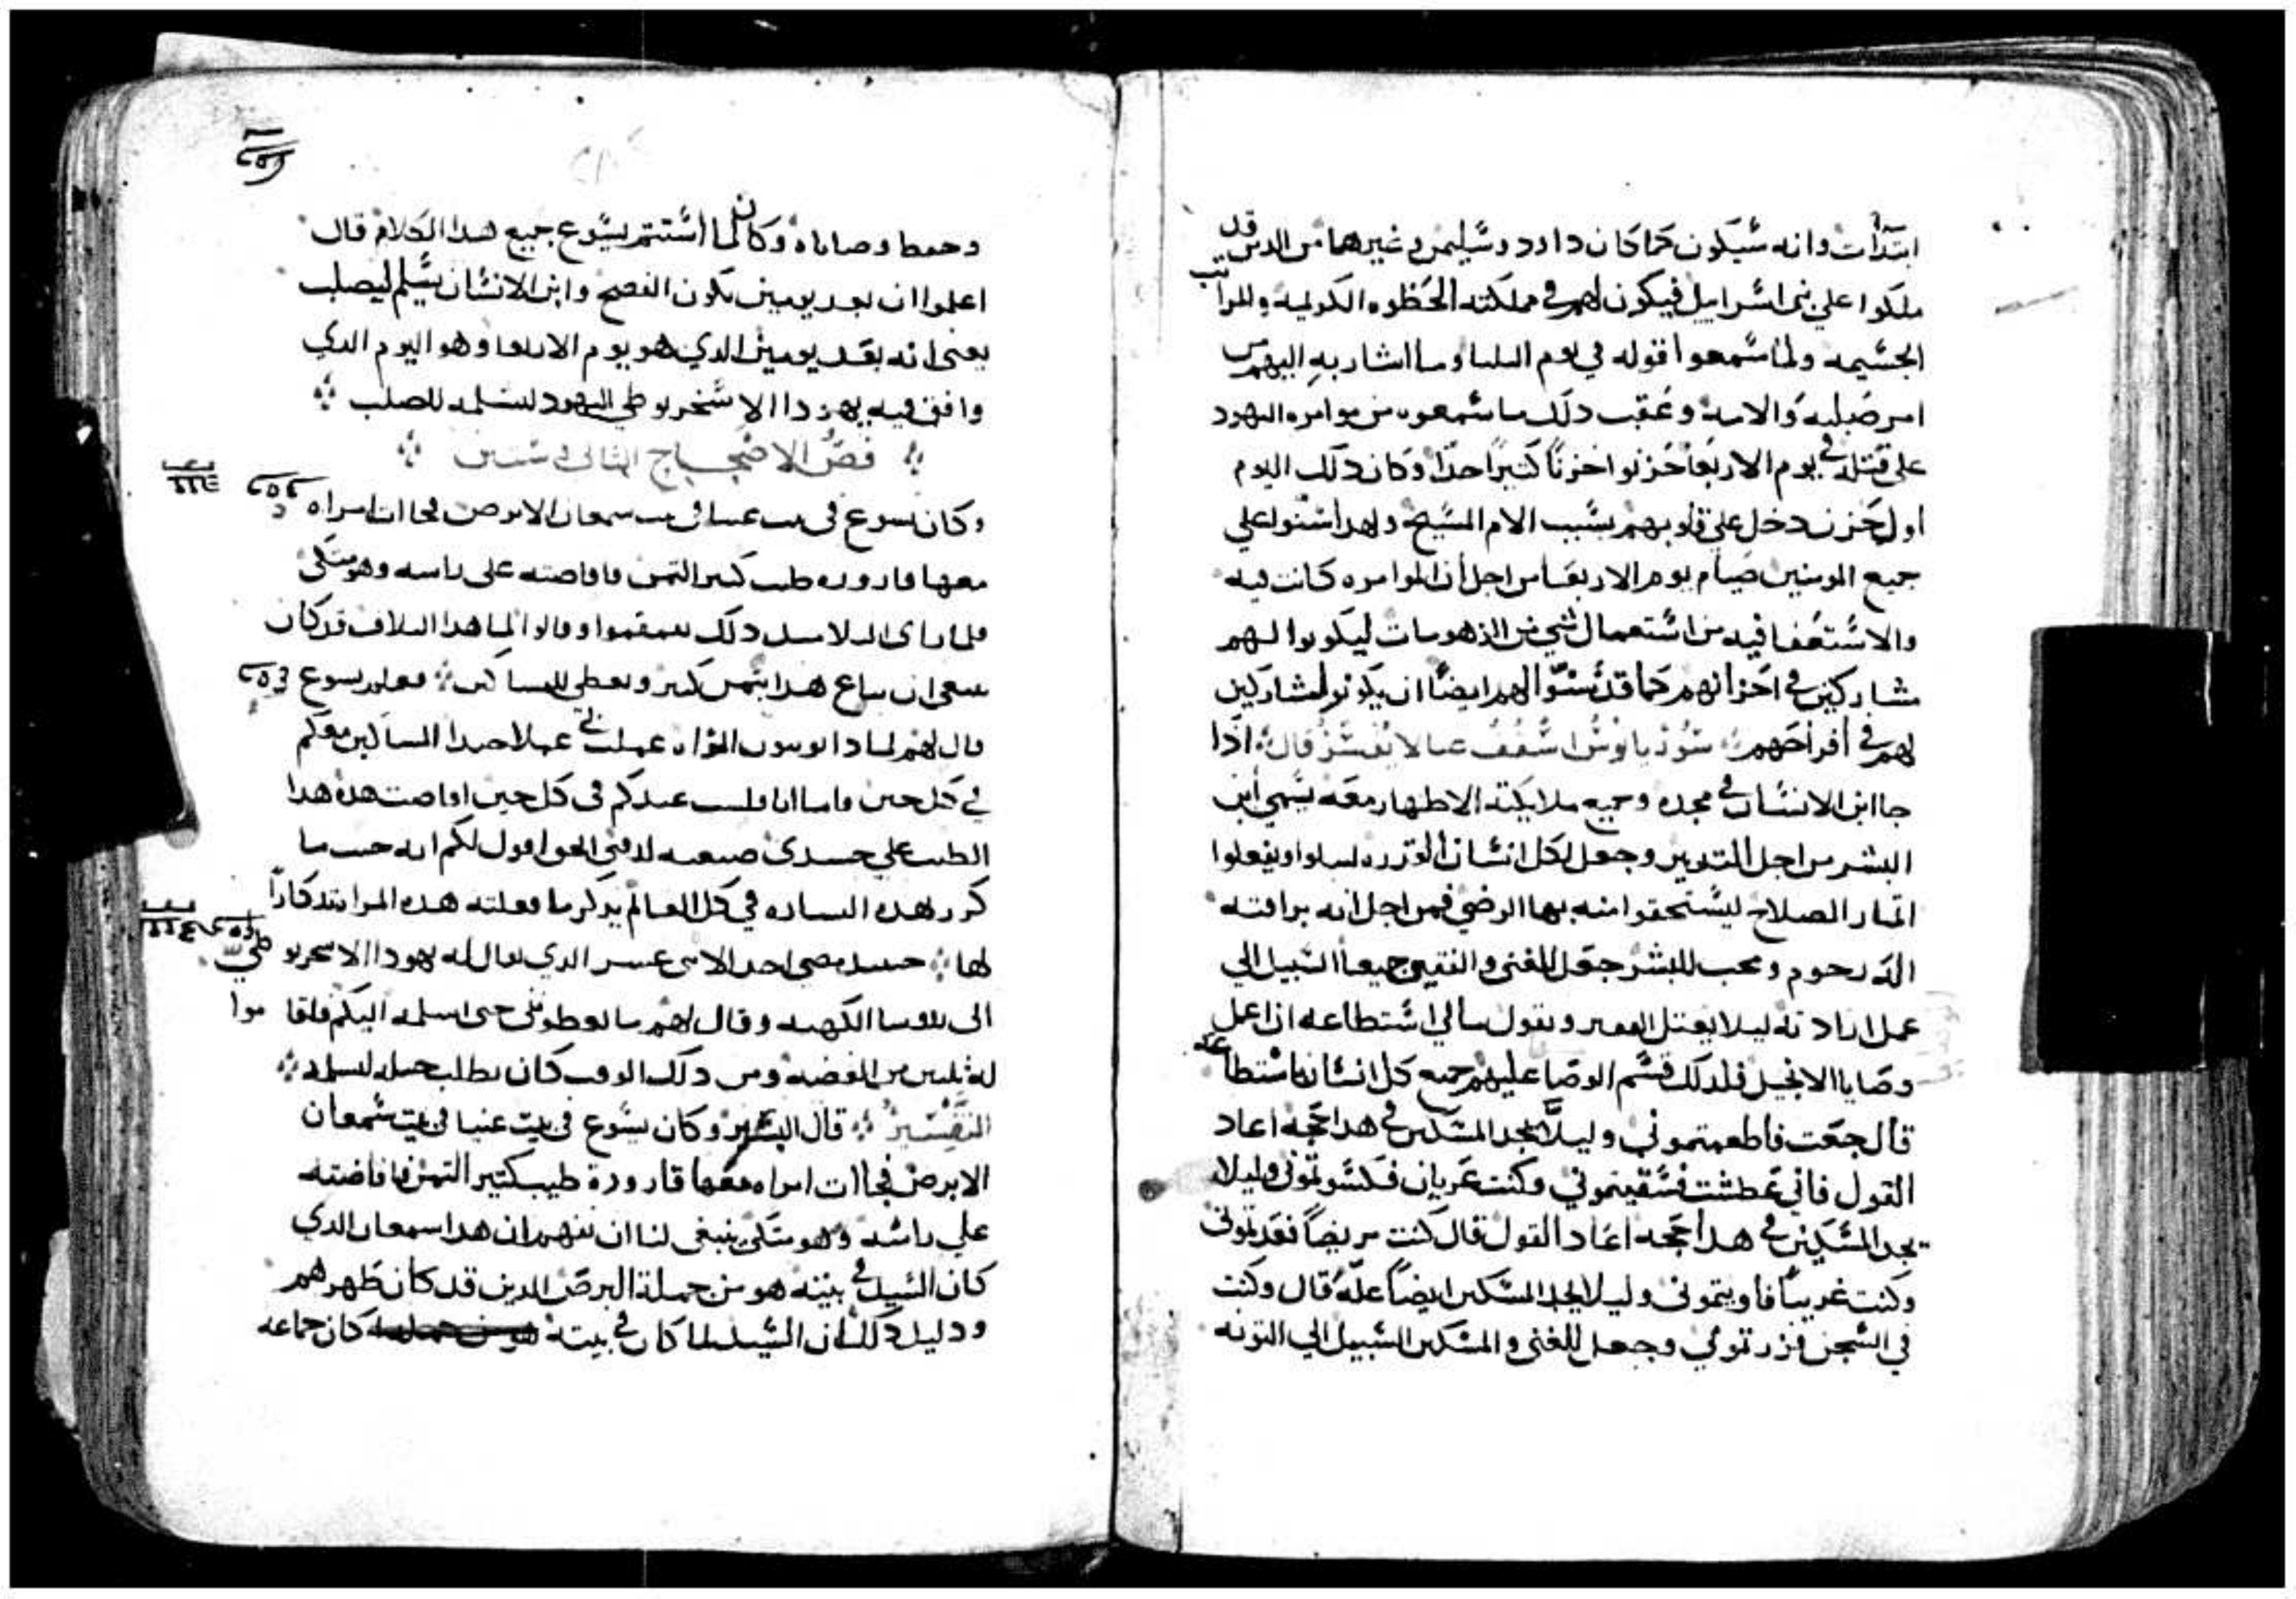 ابتدأت وانه سيكون كما كان داود وسليمن وغيرهما من الدين قد
ملكوا على بنى اسراييل فيكون لهم في مملكته الحظوه الكوليه والمراتب
الجسيمه ولما سمعوا قوله في يوم الثلثا وما اشار به اليهم من
امر صلبه والامه وعقب دلك ما سمعوه من موامره اليهود
على قتله في يوم الاربعا حزنوا حزنًا كتيرًا جدًا وكان دلك اليوم
اول حزن دخل على قلوبهم بسبب الام المسيح ولهدا استنوا علي
جميع المومنين صيام يوم الاربعا من اجل ان الموامره كانت فيه
والاستعفا فيه من استعمال شي من الذهومات ليكونوا لهم
مشاركين في احزانهم كما قد سنوا لهم ايضًا ان يكونوا مشاركين
لهم في أفراحهم قال اذا
جا ابن الانسان في مجده وجميع ملايكته الاطهار معه يسمي ابن
البشر من اجل التدبير وجعل لكل انسان القدره ليسلوا ويفعلوا
اتمار الصلاح ليستحقوا منه بها الرضي فمن اجل انه برافته
اله رحوم ومحب للبشر جعل للغنى والفقير جميعا السبيل الي
عمل ارادته ليلا يعتل الفقير ويقول مالي استطاعه ان اعمل
وصايا الانجيل فلدلك قسم الوصايا عليهم جميع كل انسان كاستطاعته
قال جعت فاطعمتموني وليلا يجد المسكين في هدا حجه اعاد
القول فاني عطشت فسقيتموني وكنت عريان فكسوتموني وليلا
يجد المسكين في هدا حجه اعاد القول قال كنت مريضًا فعدتموني
وكنت غريبًا فاويتموني وليلا يجد المسكين ايضًا علّه قال وكنت
في السجن فزرتموني وجعل للغنى والمسكين السبيل الي التوبه
وحفظ وصاياه وكان لما استتم يسوع جميع هدا الكلام قال
اعلموا ان بعد يومين تكون الفصح وابن الانسان يسلم ليصلب
يعنى انه بعد يومين الدي هو يوم الاربعا وهو اليوم الدي
وافق فيه يهودا الاسخريوطي اليهود ليسلمه للصلب
فصّ الاصحاح التانى وستين
وكان يسوع فى بيت عنيا فى بيت سمعان الابرص فجاات امراه
معها قاروره طيب كتير التمن فافاضته على راسه وهو متكى
فلما راى التلاميد دلك تقمقموا وقالوا لما هدا التلاف قد كان
ينبغى ان يباع هدا بتمن كتير ويعطى للمساكين فعلم يسوع
قال لهم لمادا توبنون المراه عملت بي عملا حسنا المساكين معكم
في كل حين واما انا فلست عندكم فى كل حين افاضت هده هدا
الطيب علي جسدى صنعته لدفنى الحق اقول لكم انه حيت ما
كرر بهده البشاره في كل العالم يدكر ما فعلته هده المراه تدكارًا
لها حينيد مضى احد الاتنى عسر الدي يقال له يهودا الاسخريوطي
الى روسا الكهنه وقال لهم ما تعطونى حتى اسلمه اليكم فاقاموا
له تلتين من الفضه ومن دلك الوقت كان يطلب حيله ليسلمه
التفسير قال البشير وكان يسوع فى بيت عنيا فى بيت سمعان
الابرص فجاات امراه معها قارورة طيب كتير التمن فافاضته
علي راسه وهو متكى ينبغى لنا ان نفهم ان هدا سمعان الدي
كان السيد في بيته هو من جملة البرص الدين قد كان طهرهم
ودليل دلك ان السيد لما كان في بيته كان جماعه